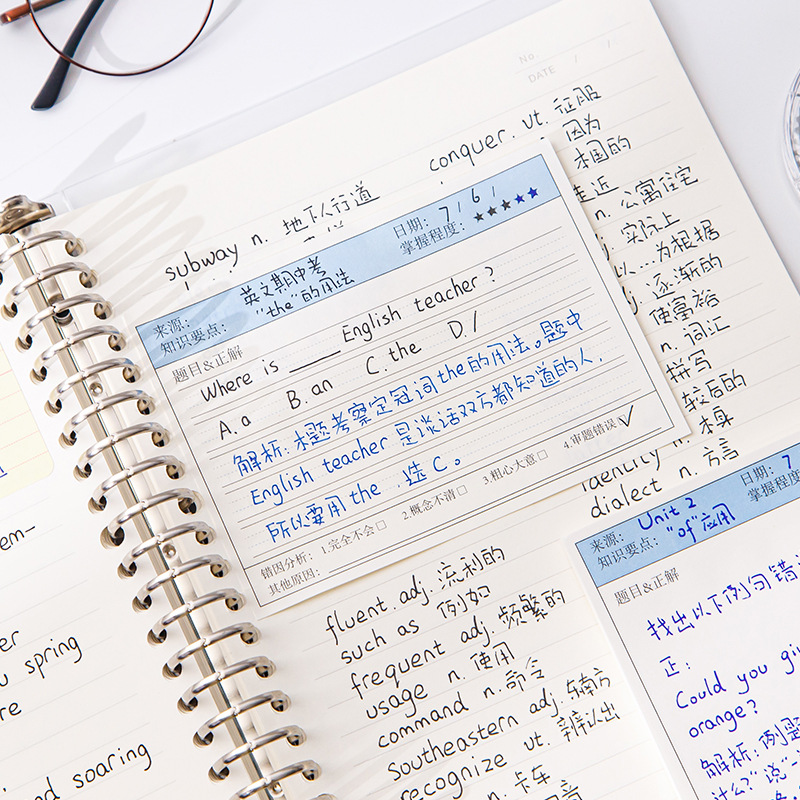 No.
DATE / /
conquer. vt. 征服
因为
本国的
subway n. 地下人行道
走近
n. 公寓住宅
实际上
以...为根据
逐渐的
使富裕
n. 词汇
拼写
较后的
n. 本身
identity n.
dialect n. 方言
来源: 英文期中考
知识要点: "the"的用法
日期: 7 / 6 /
掌握程度: ★★★★★
题目&正解
Where is ____ English teacher?
A. a B. an C. the D. /
解析: 本题考察定冠词the的用法。题中
English teacher 是谈话双方都知道的人.
所以要用the. 选C。
错因分析: 1.完全不会□ 2.概念不清□ 3.粗心大意□ 4.审题错误☑
其他原因:
fluent. adj. 流利的
such as 例如
frequent adj. 频繁的
usage n. 使用
command n. 命令
Southeastern adj. 东南方
recognize vt. 辨认出
n. 卡车
来源: Unit 2
知识要点: "of"应用
日期: 7
掌握程度
题目&正解
找出以下例句错
正:
Could you gi
orange?
解析: 例题
什么?"说"一
em-
er
u spring
re
nd soaring